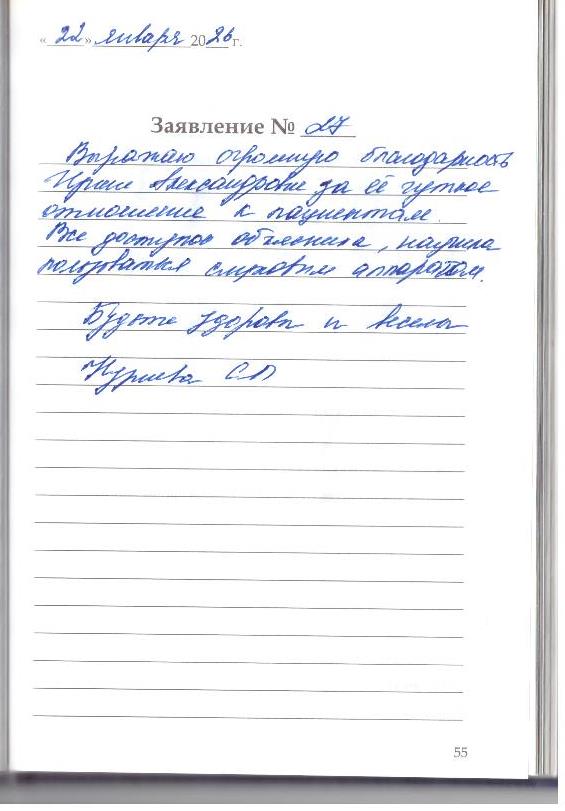 «22» января 2026 г.
Заявление № 27
Выражаю огромную благодарность
Ирине Александровне за её чуткое
отношение к пациентам.
Все доступно объяснила, научила
пользоваться слуховым аппаратом.
Будьте здоровы и веселы
С.П
55